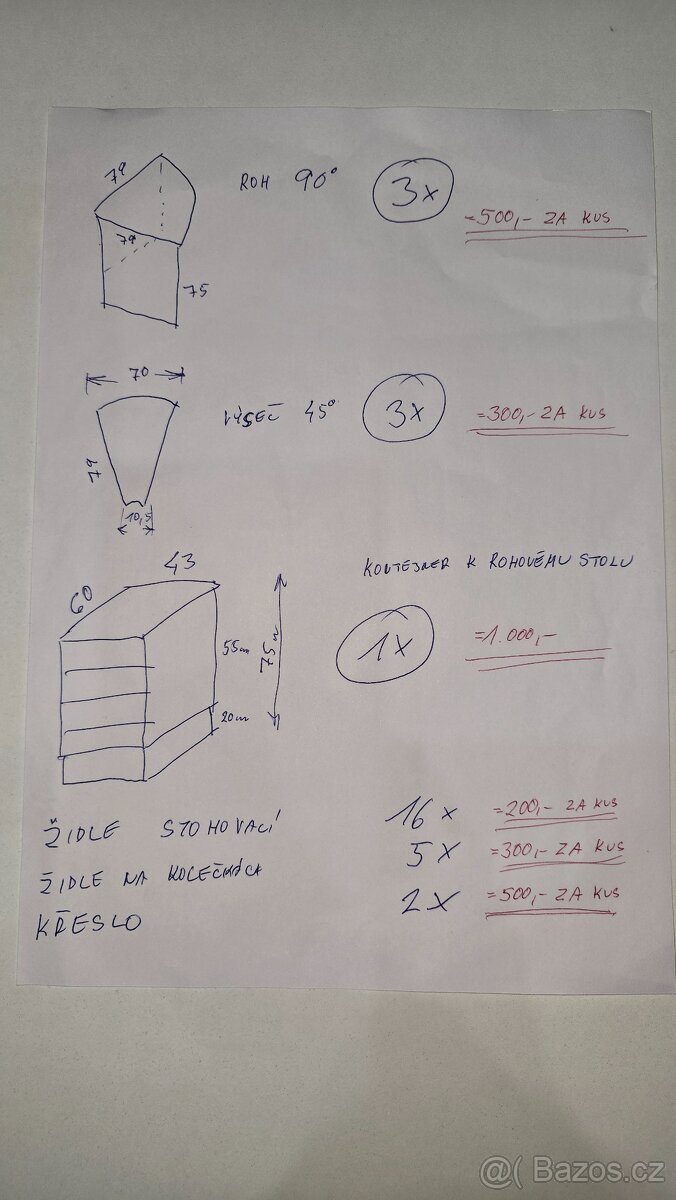 79
ROH 90° 3x
=500,- ZA KUS
79
75
70
VÝSEČ 45° 3x =300,- ZA KUS
79
10,5
43
KONTEJNER K ROHOVÉMU STOLU
60
1x =1.000,-
55cm
75
20cm
ŽIDLE STOHOVACÍ 16x =200,- ZA KUS
ŽIDLE NA KOLEČKÁCH 5x =300,- ZA KUS
KŘESLO 2x =500,- ZA KUS
@( Bazos.cz